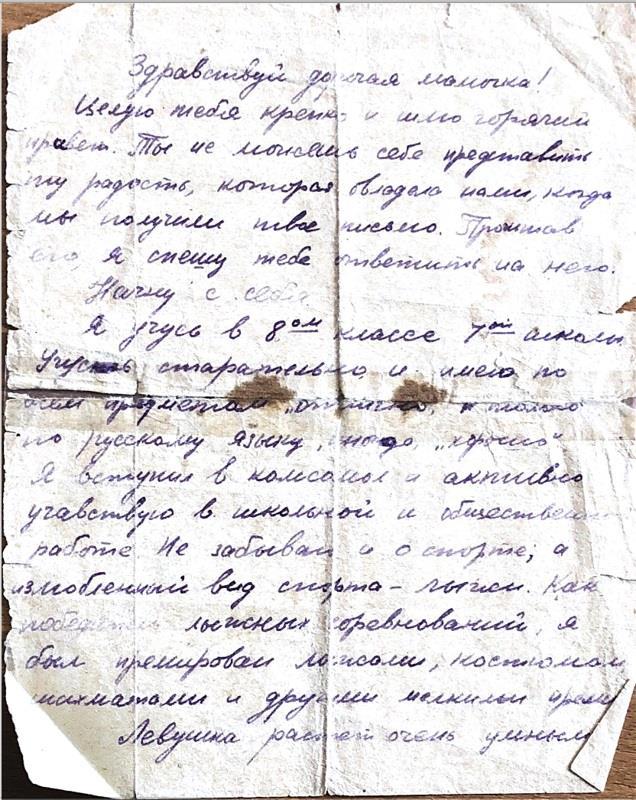 Здравствуй дорогая мамочка!
Целую тебя крепко и шлю горячий
привет. Ты не можешь себе представить
ту радость, которая овладела нами, когда
мы получили твое письмо. Прочитав
его, я спешу тебе ответить на него.
Начну с себя.
Я учусь в 8ом классе 7ой школы.
Учусь старательно и имею по
всем предметам „отлично, и только
по русскому языку, иногда, „хорошо"
Я вступил в комсомол и активно
учавствую в школьной и общественной
работе. Не забываю и о спорте, а
излюбленный вид спорта – лыжи. Как
победитель лыжных соревнований, я
был премирован лыжами, костюмом
шахматами и другими мелкими
Левушка растет очень умным